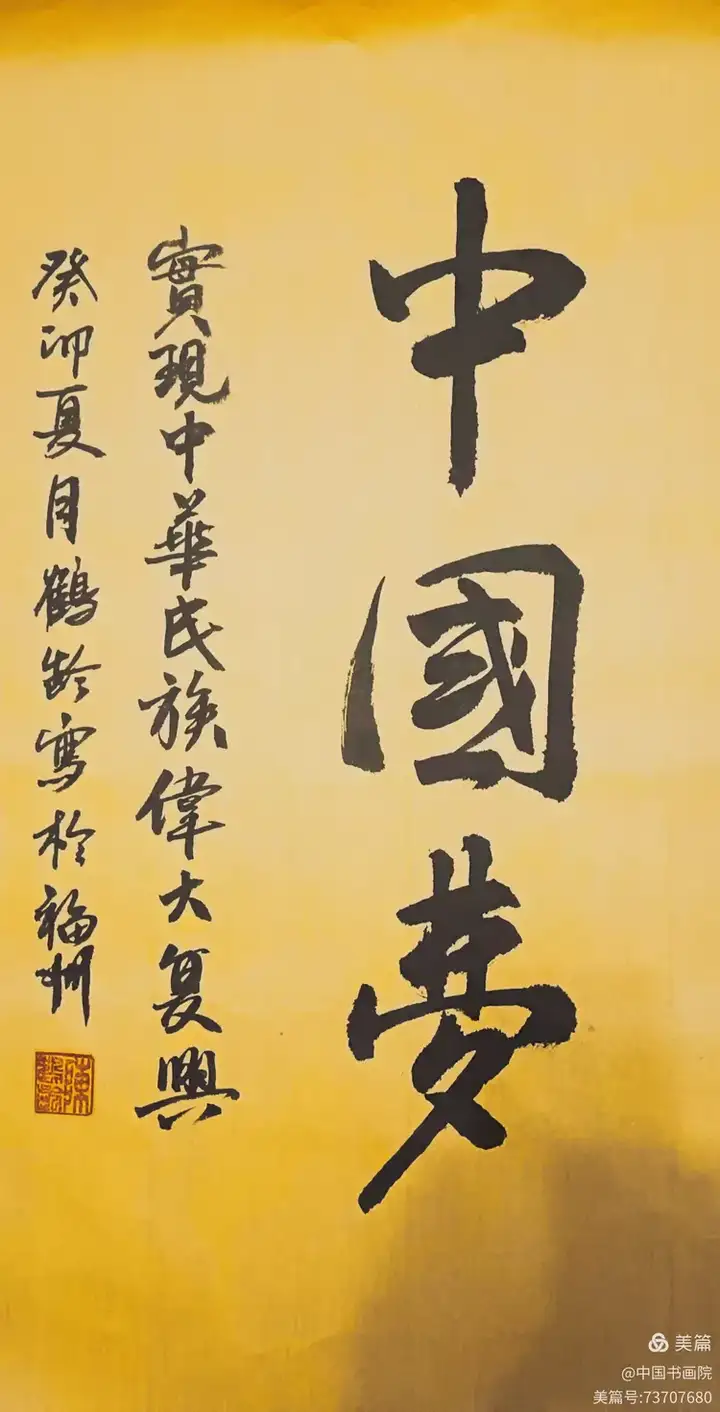 中國夢
實現中華民族偉大复興
癸卯夏月鶴齡寫於福州
美篇
@中国书画院
美篇号:73707680